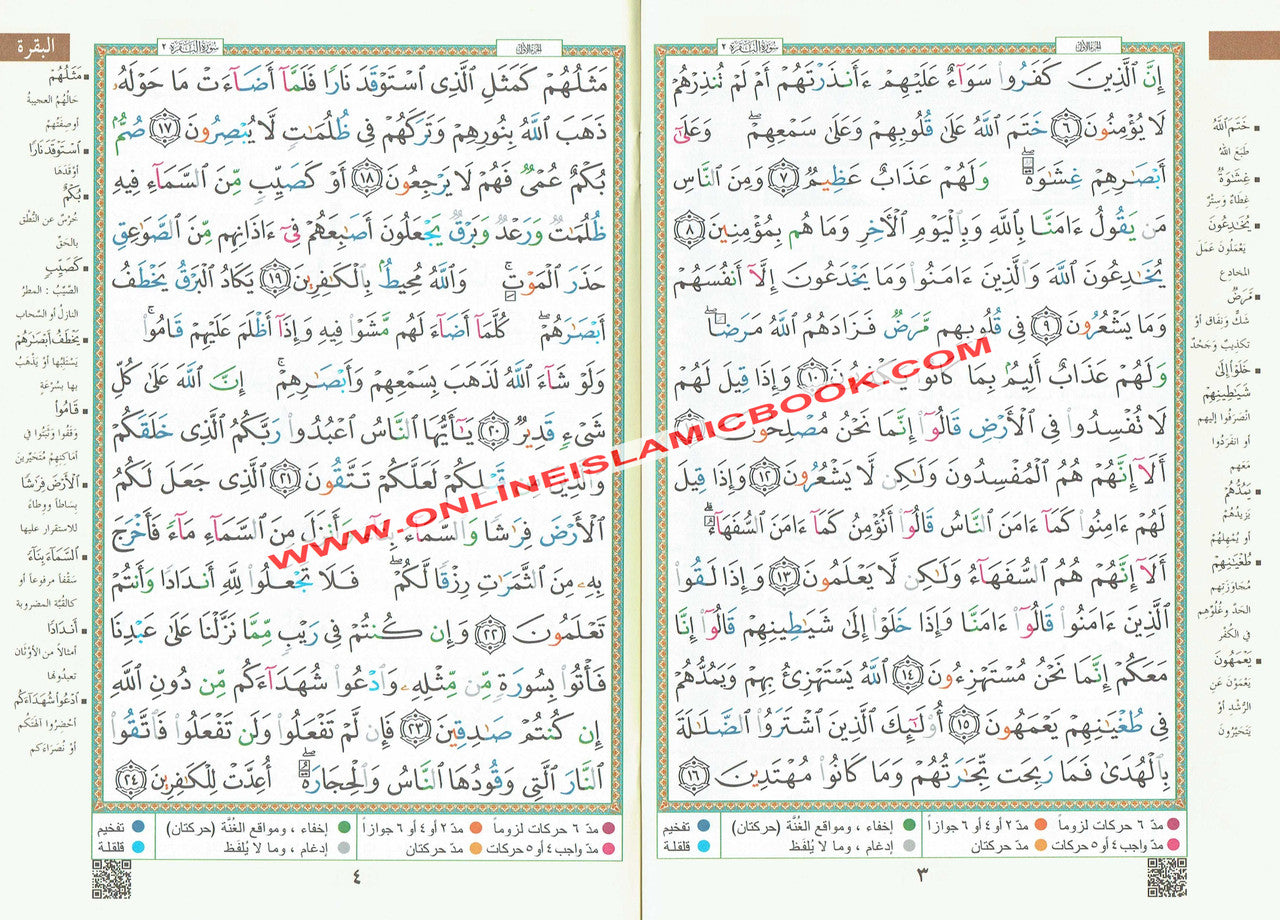 الجزء الأول
سورة البقرة ٢
إِنَّ ٱلَّذِينَ كَفَرُوا۟ سَوَآءٌ عَلَيْهِمْ ءَأَنذَرْتَهُمْ أَمْ لَمْ تُنذِرْهُمْ
لَا يُؤْمِنُونَ ٦ خَتَمَ ٱللَّهُ عَلَىٰ قُلُوبِهِمْ وَعَلَىٰ سَمْعِهِمْ ۖ وَعَلَىٰٓ
أَبْصَـٰرِهِمْ غِشَـٰوَةٌ ۖ وَلَهُمْ عَذَابٌ عَظِيمٌ ٧ وَمِنَ ٱلنَّاسِ
مَن يَقُولُ ءَامَنَّا بِٱللَّهِ وَبِٱلْيَوْمِ ٱلْـَٔاخِرِ وَمَا هُم بِمُؤْمِنِينَ ٨
يُخَـٰدِعُونَ ٱللَّهَ وَٱلَّذِينَ ءَامَنُوا۟ وَمَا يَخْدَعُونَ إِلَّآ أَنفُسَهُمْ
وَمَا يَشْعُرُونَ ٩ فِى قُلُوبِهِم مَّرَضٌ فَزَادَهُمُ ٱللَّهُ مَرَضًا ۖ
وَلَهُمْ عَذَابٌ أَلِيمٌۢ بِمَا كَانُوا۟ يَكْذِبُونَ ١٠ وَإِذَا قِيلَ لَهُمْ
لَا تُفْسِدُوا۟ فِى ٱلْأَرْضِ قَالُوٓا۟ إِنَّمَا نَحْنُ مُصْلِحُونَ
أَلَآ إِنَّهُمْ هُمُ ٱلْمُفْسِدُونَ وَلَـٰكِن لَّا يَشْعُرُونَ ١٢ وَإِذَا قِيلَ
لَهُمْ ءَامِنُوا۟ كَمَآ ءَامَنَ ٱلنَّاسُ قَالُوٓا۟ أَنُؤْمِنُ كَمَآ ءَامَنَ ٱلسُّفَهَآءُ ۗ
أَلَآ إِنَّهُمْ هُمُ ٱلسُّفَهَآءُ وَلَـٰكِن لَّا يَعْلَمُونَ ١٣ وَإِذَا لَقُوا۟
ٱلَّذِينَ ءَامَنُوا۟ قَالُوٓا۟ ءَامَنَّا وَإِذَا خَلَوْا۟ إِلَىٰ شَيَـٰطِينِهِمْ قَالُوٓا۟ إِنَّا
مَعَكُمْ إِنَّمَا نَحْنُ مُسْتَهْزِءُونَ ١٤ ٱللَّهُ يَسْتَهْزِئُ بِهِمْ وَيَمُدُّهُمْ
فِى طُغْيَـٰنِهِمْ يَعْمَهُونَ ١٥ أُو۟لَـٰٓئِكَ ٱلَّذِينَ ٱشْتَرَوُا۟ ٱلضَّلَـٰلَةَ
بِٱلْهُدَىٰ فَمَا رَبِحَت تِّجَـٰرَتُهُمْ وَمَا كَانُوا۟ مُهْتَدِينَ ١٦
خَتَمَ ٱللَّهُ
طَبَعَ اللهُ
غِشَـٰوَةٌ
غِطَاءٌ وَسِتْرٌ
يُخَـٰدِعُونَ
يَعْمَلُونَ عَمَلَ
المخادع
مَّرَضٌ
شَكٌّ وَنفاق أَوْ
تكذيبٌ وَجَحْدٌ
خَلَوْا۟ إِلَىٰ
شَيَـٰطِينِهِمْ
انْصَرَفُوا إليهم
أو انفَرَدُوا
مَعَهم
يَمُدُّهُمْ
يَزِيدُهُمْ
أو يُمْهِلهُمْ
طُغْيَـٰنِهِمْ
مُجَاوَزَتِهم
الحَدَّ وغُلُوِّهِم
في الكُفْر
يَعْمَهُونَ
يَعْمَوْنَ عَنِ
الرُّشْدِ أوْ
يَتَحَيَّرُونَ
مدّ ٦ حركات لزوماً
مدّ ٢ أو ٤ أو ٦ جوازاً
إخفاء ، ومواقع الغُنَّة (حركتان)
تفخيم
مدّ واجب ٤ أو ٥ حركات
مدّ حركتان
إدغام ، وما لا يُلفَظ
قلقلة
٣
البقرة
الجزء الأول
سورة البقرة ٢
مَثَلُهُمْ كَمَثَلِ ٱلَّذِى ٱسْتَوْقَدَ نَارًا فَلَمَّآ أَضَآءَتْ مَا حَوْلَهُۥ
ذَهَبَ ٱللَّهُ بِنُورِهِمْ وَتَرَكَهُمْ فِى ظُلُمَـٰتٍ لَّا يُبْصِرُونَ ١٧ صُمٌّۢ
بُكْمٌ عُمْىٌ فَهُمْ لَا يَرْجِعُونَ ١٨ أَوْ كَصَيِّبٍ مِّنَ ٱلسَّمَآءِ فِيهِ
ظُلُمَـٰتٌ وَرَعْدٌ وَبَرْقٌ يَجْعَلُونَ أَصَـٰبِعَهُمْ فِىٓ ءَاذَانِهِم مِّنَ ٱلصَّوَٰعِقِ
حَذَرَ ٱلْمَوْتِ ۚ وَٱللَّهُ مُحِيطٌۢ بِٱلْكَـٰفِرِينَ ١٩ يَكَادُ ٱلْبَرْقُ يَخْطَفُ
أَبْصَـٰرَهُمْ ۖ كُلَّمَآ أَضَآءَ لَهُم مَّشَوْا۟ فِيهِ وَإِذَآ أَظْلَمَ عَلَيْهِمْ قَامُوا۟ ۚ
وَلَوْ شَآءَ ٱللَّهُ لَذَهَبَ بِسَمْعِهِمْ وَأَبْصَـٰرِهِمْ ۚ إِنَّ ٱللَّهَ عَلَىٰ كُلِّ
شَىْءٍ قَدِيرٌ ٢٠ يَـٰٓأَيُّهَا ٱلنَّاسُ ٱعْبُدُوا۟ رَبَّكُمُ ٱلَّذِى خَلَقَكُمْ
وَٱلَّذِينَ مِن قَبْلِكُمْ لَعَلَّكُمْ تَتَّقُونَ ٢١ ٱلَّذِى جَعَلَ لَكُمُ
ٱلْأَرْضَ فِرَٰشًا وَٱلسَّمَآءَ بِنَآءً وَأَنزَلَ مِنَ ٱلسَّمَآءِ مَآءً فَأَخْرَجَ
بِهِۦ مِنَ ٱلثَّمَرَٰتِ رِزْقًا لَّكُمْ ۖ فَلَا تَجْعَلُوا۟ لِلَّهِ أَندَادًا وَأَنتُمْ
تَعْلَمُونَ ٢٢ وَإِن كُنتُمْ فِى رَيْبٍ مِّمَّا نَزَّلْنَا عَلَىٰ عَبْدِنَا
فَأْتُوا۟ بِسُورَةٍ مِّن مِّثْلِهِۦ وَٱدْعُوا۟ شُهَدَآءَكُم مِّن دُونِ ٱللَّهِ
إِن كُنتُمْ صَـٰدِقِينَ ٢٣ فَإِن لَّمْ تَفْعَلُوا۟ وَلَن تَفْعَلُوا۟ فَٱتَّقُوا۟
ٱلنَّارَ ٱلَّتِى وَقُودُهَا ٱلنَّاسُ وَٱلْحِجَارَةُ ۖ أُعِدَّتْ لِلْكَـٰفِرِينَ ٢٤
مَثَلُهُمْ
حَالُهُمُ العجيبةُ
أو صِفَتُهمْ
ٱسْتَوْقَدَ نَارًا
أوْقَدَهَا
بُكْمٌ
خُرْسٌ عن النُّطْقِ
بالحَقِّ
كَصَيِّبٍ
الصَّيِّبُ : المطرُ
النازلُ أو السَّحاب
يَخْطَفُ أَبْصَـٰرَهُمْ
يَسْتَلِبُها أوْ يَذْهَبُ
بها بسُرْعَةٍ
قَامُوا۟
وَقَفُوا وَثَبَتُوا في
أماكِنِهِمْ مُتَحَيِّرين
ٱلْأَرْضَ فِرَٰشًا
بِسَاطاً وَوِطَاءً
للاستقرار عليها
ٱلسَّمَآءَ بِنَآءً
سَقْفاً مرفوعاً أو
كالقُبَّة المضروبة
أَندَادًا
أمثالاً من الأوْثان
تعبدُونها
ٱدْعُوا۟ شُهَدَآءَكُم
أحْضِرُوا آلهَتَكُم
أوْ نُصَرَاءَكم
مدّ ٦ حركات لزوماً
مدّ ٢ أو ٤ أو ٦ جوازاً
إخفاء ، ومواقع الغُنَّة (حركتان)
تفخيم
مدّ واجب ٤ أو ٥ حركات
مدّ حركتان
إدغام ، وما لا يُلفَظ
قلقلة
٤
WWW.ONLINEISLAMICBOOK.COM